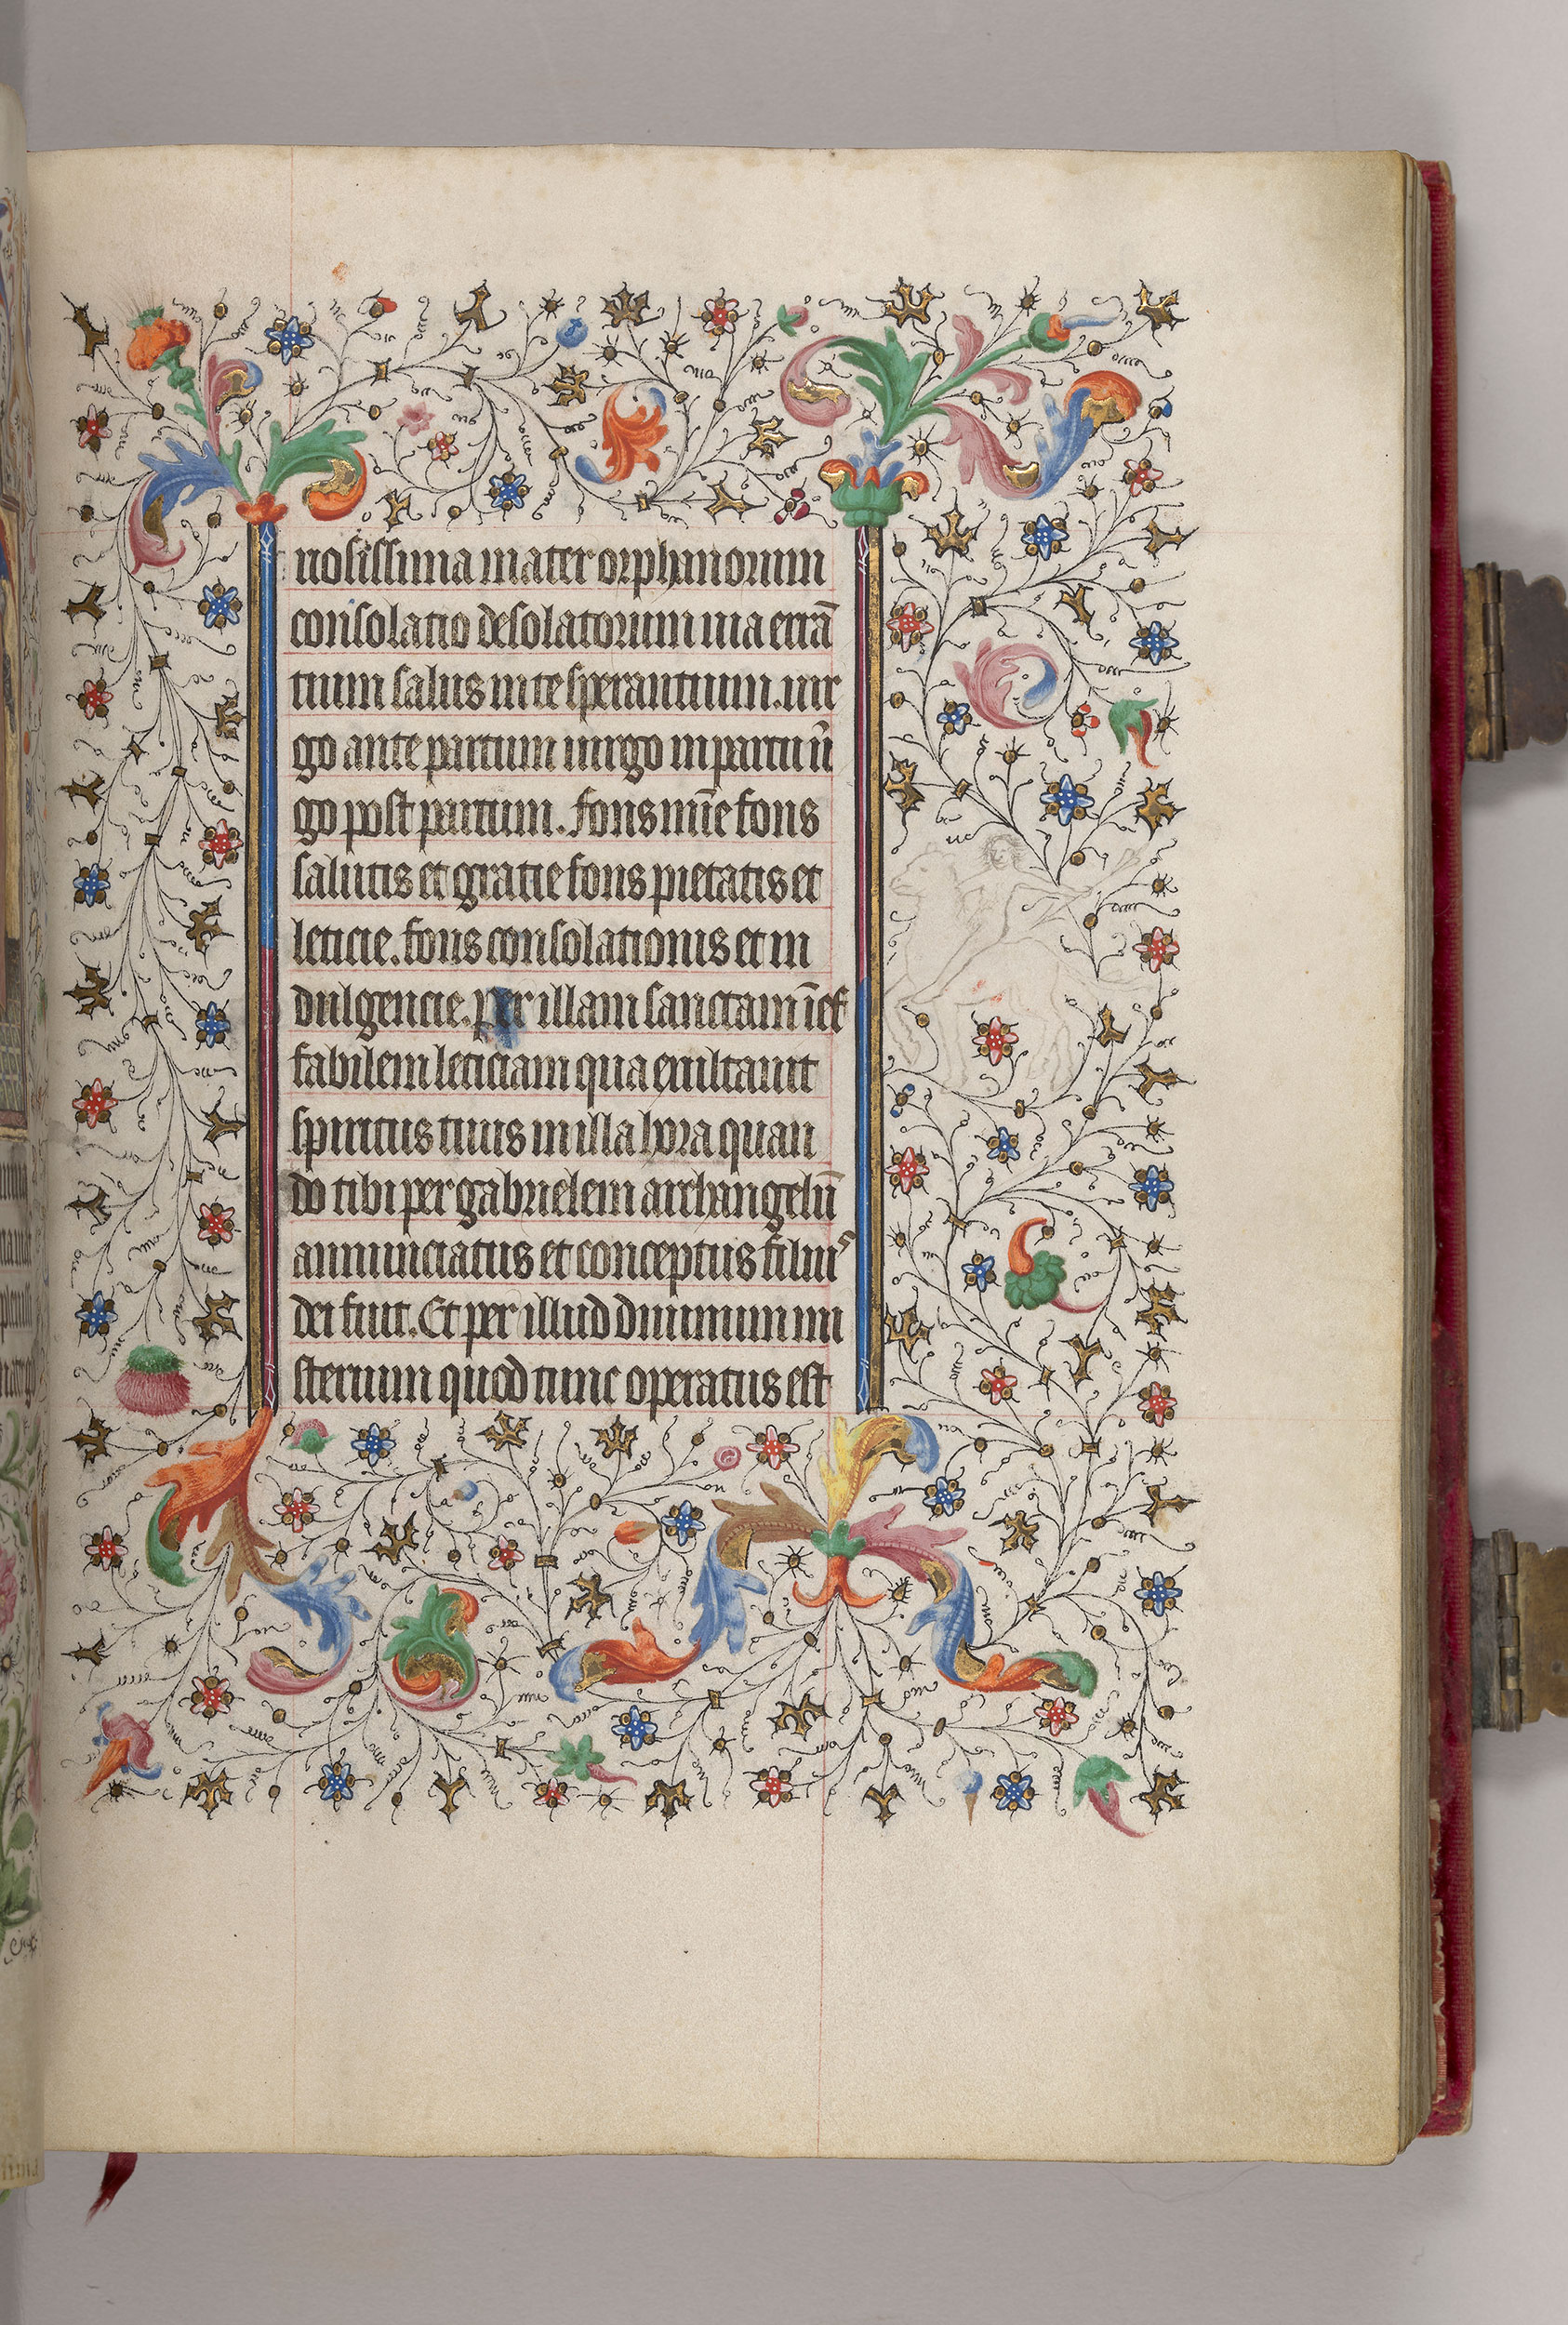 nosissima mater orphanorum
consolatio desolatorum uia errā
tium salus in te sperantium. uir
go ante partum uirgo in partu ū
go post partum. fons mīe fons
salutis et gratie fons pietatis et
leticie. fons consolationis et in
dulgencie. per illam sanctam īef
fabilem leticiam qua exultauit
spiritus tuus in illa hora quan
do tibi per gabrielem archangelū
annunciatus et conceptus filius
dei fuit. Et per illud diuinum mi
sterium quod tunc operatus est